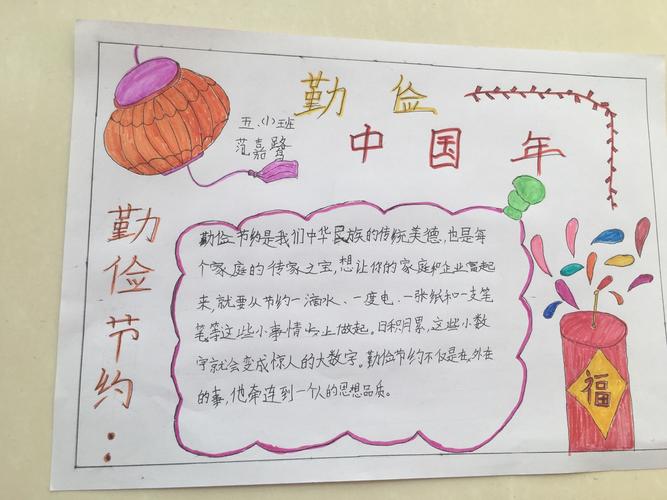 勤俭
中国年
五.(1)班
范嘉鹭
勤俭节约:
勤俭节约是我们中华民族的传统美德,也是每
个家庭的传家之宝,想让你的家庭和企业富起
来,就要从节约一滴水、一度电、一张纸和一支笔
笔等这些小事情上做起。日积月累,这些小数
字就会变成惊人的大数字。勤俭节约不仅是在外在
的事,他牵连到一个人的思想品质。
福